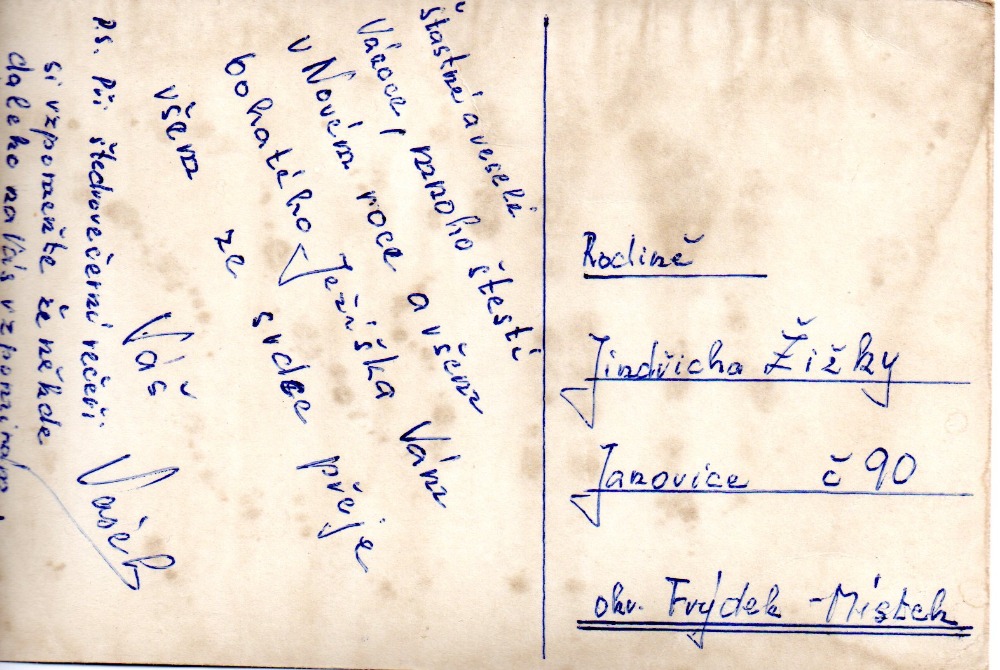 Štastné a veselé
Vánoce, mnoho štestí
v Novém roce a všem
bohatého Ježíška Vám
všem ze srdce přeje
Váš Vašek
P.s. Při štedrovečerní večeři
si vzpomeňte že někde
daleko na Vás vzpomínám.
Rodině
Jindřicha Žižky
Janovice č 90
okr. Frýdek-Místek